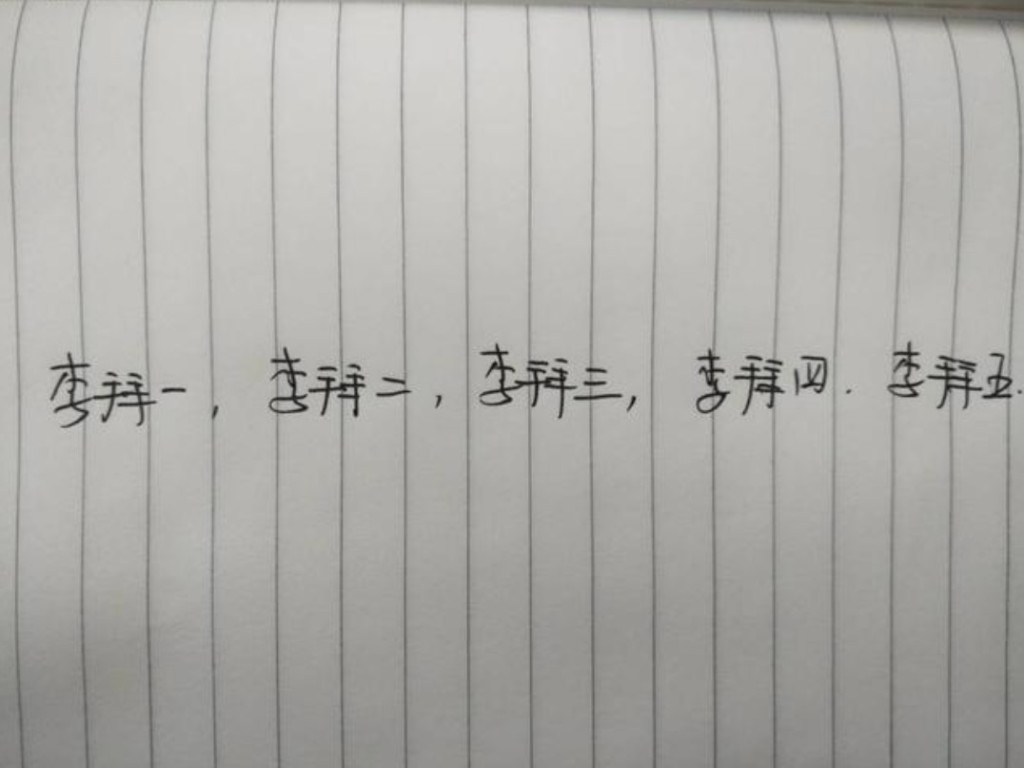 李拜一，李拜二，李拜三，李拜四．李拜五．